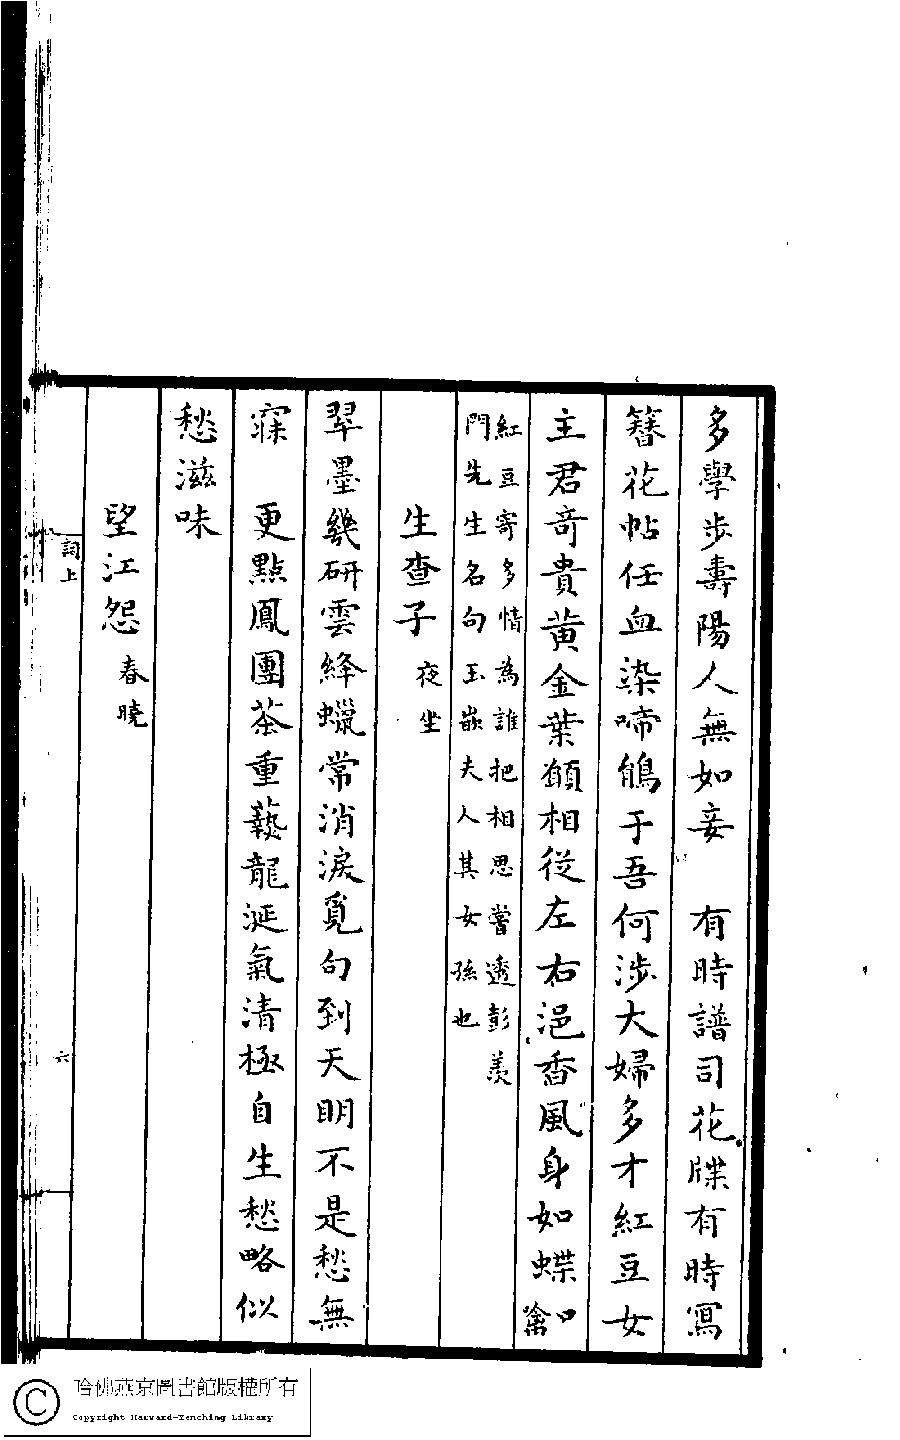 多學步壽陽人無如妾　有時譜司花牒有時寫
簪花帖任血染啼鵑于吾何涉大婦多才紅豆女
主君奇貴黃金葉願相從左右浥香風身如蝶
紅豆寄多情為誰把相思嘗透彭羨
門先生名句玉嵌夫人其女孫也
生查子 夜坐
翠墨幾研雲絳蠟常消淚覓句到天明不是愁無
寐　更點鳳團茶重爇龍涎氣清極自生愁略似
愁滋味
望江怨 春曉
詞上
六
哈佛燕京圖書館版權所有
Copyright Harvard-Yenching Library